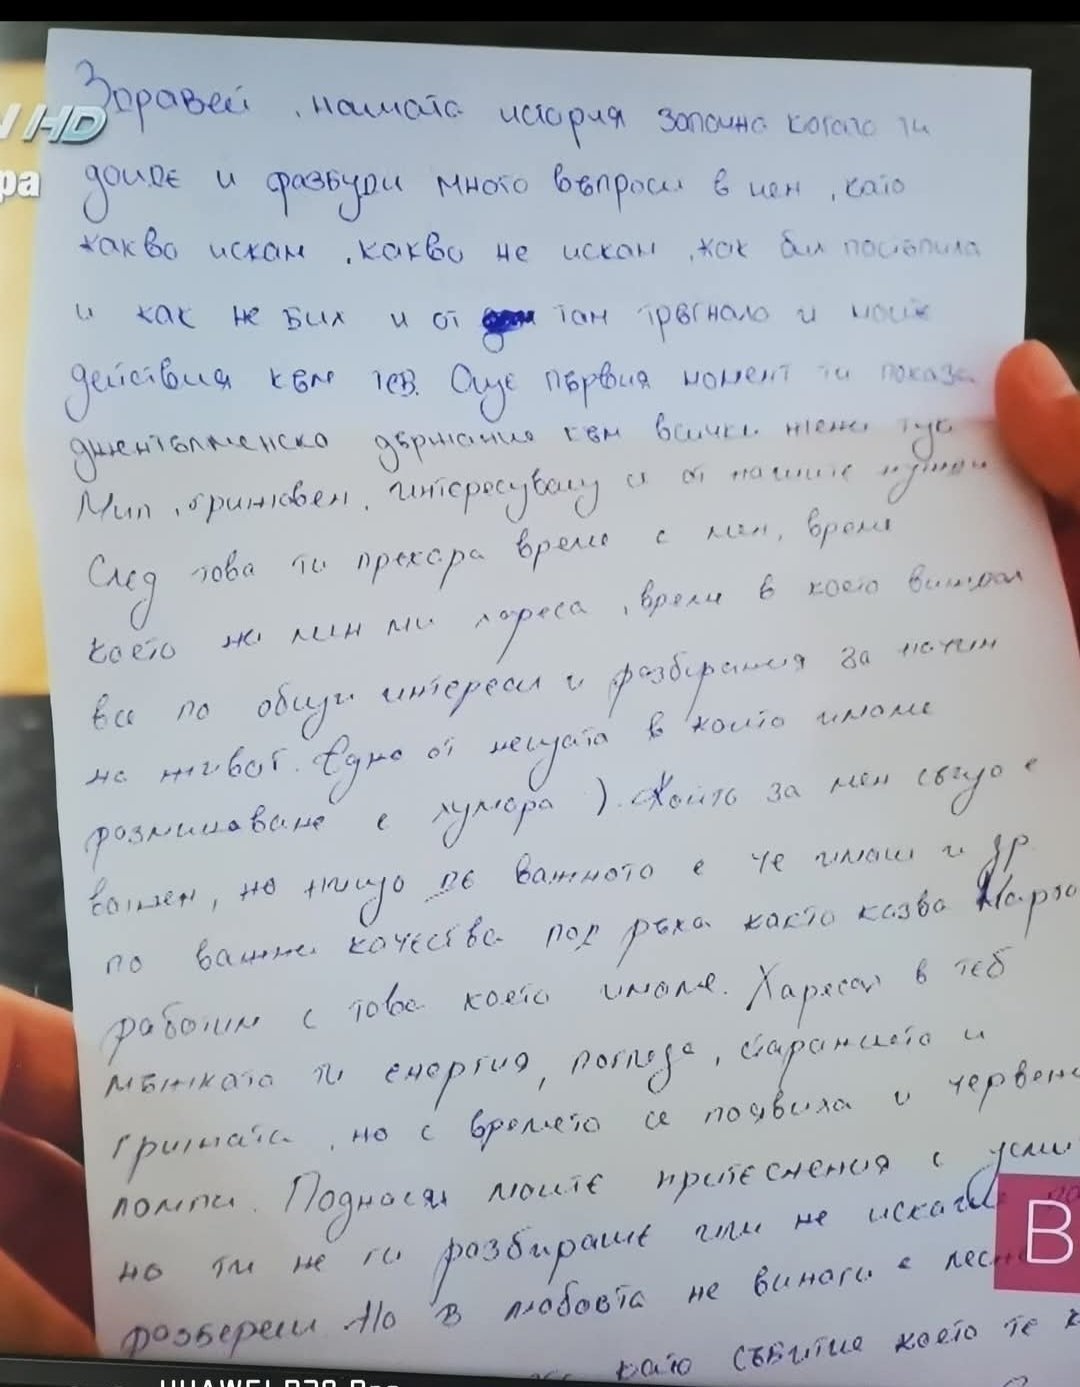 V HD
ра
Здравей, нашата история започна когато ти
дойде и разбуди много въпроси в мен, като
какво искам, какво не искам, как бих постъпила
и как не бих и от там тръгнало и моите
действия към теб. Още първия момент ти показа
джентълменско държание към всички жени тук
Мил, грижовен, интересуващ се от нашите нужди
След това ти прекара време с мен, време
което на мен ми хареса, време в което виждах
все по общи интереси и разбирания за начин
на живот. Едно от нещата в които имаме
разминаване е хумора ). Който за мен също е
важен, но нищо по важното е че имаш и др.
по важни качества под ръка както казва Марто
работим с това което имаме. Харесах в теб
мъжката ти енергия, погледа, старанието и
грижата, но с времето се появиха и червени
лампи. Поднасях моите притеснения с усми
но ти не ги разбираше или не искаше
разбереш Но в любовта не винаги е лесно
като събитие което те
B
HUAWEI P30 Pro